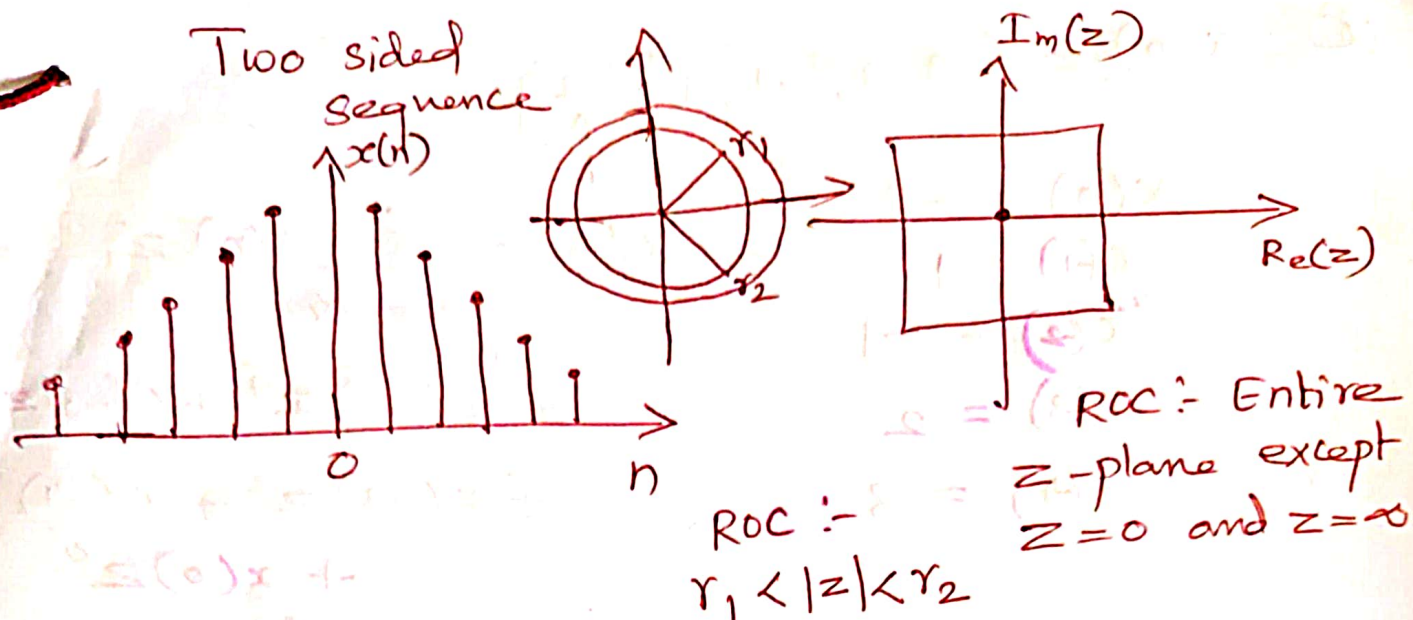 Two sided
sequence
x(n)
0
n
r1
r2
ROC :-
r1 < |z| < r2
Im(z)
Re(z)
ROC :- Entire
z-plane except
z=0 and z=∞